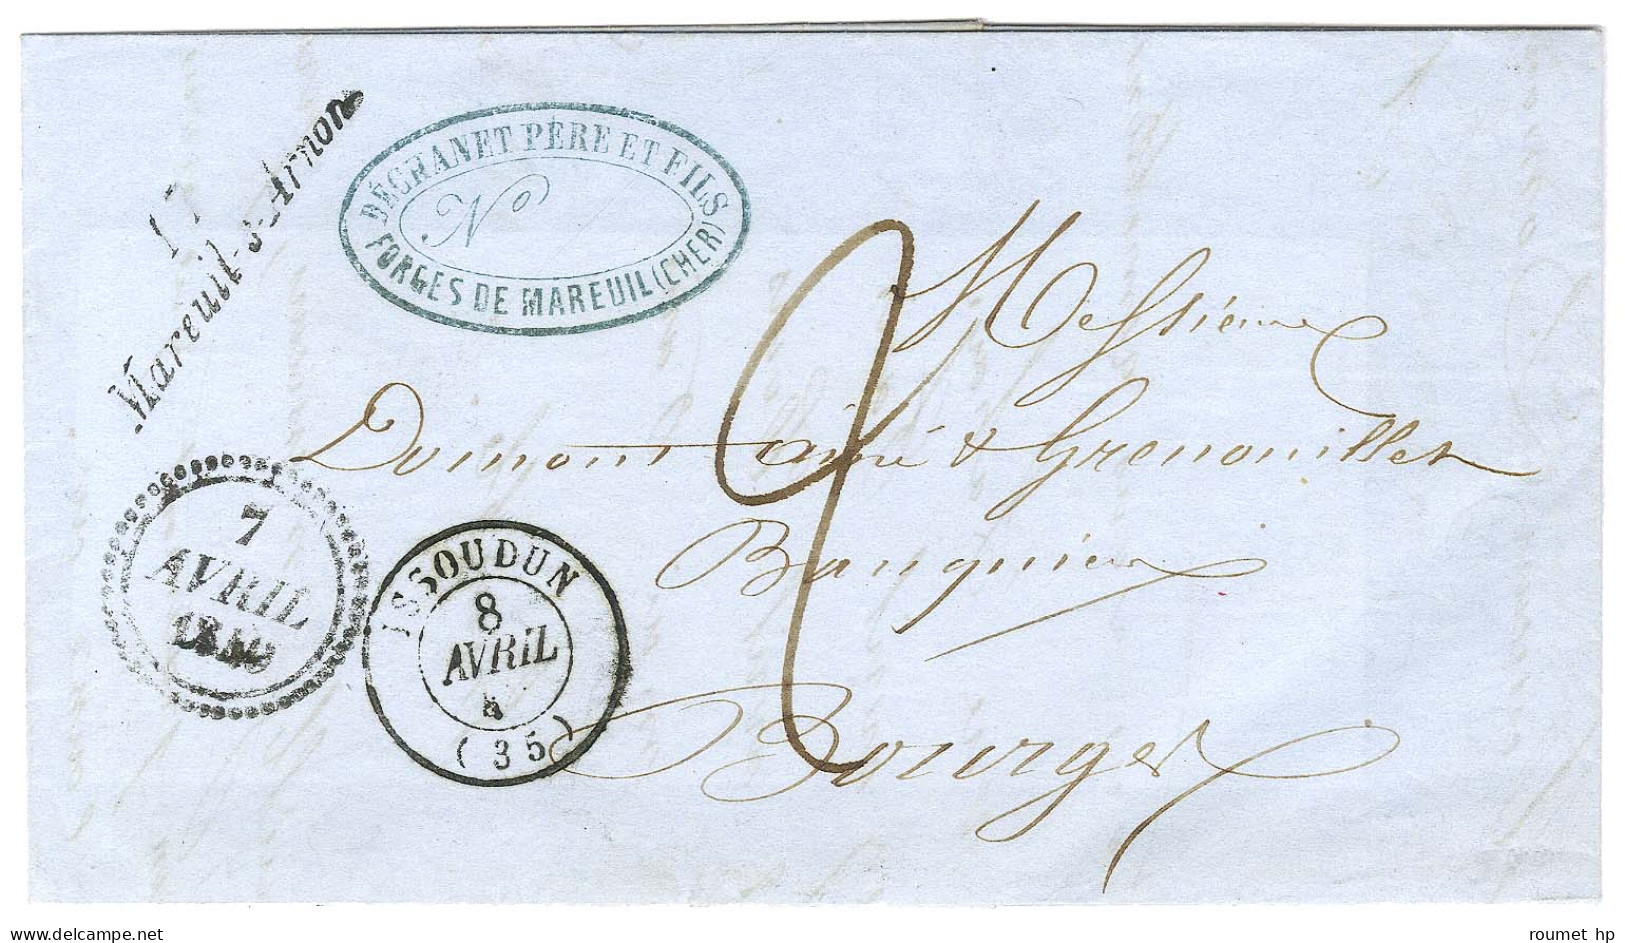 17
Mareuil-s-Arnon
DÉGRANET PÈRE ET FILS
No
FORGES DE MAREUIL (CHER)
2
Messieurs
Dumont ainé & Grenouillet
Banquiers
Bourges
7
AVRIL
ISSOUDUN
8
AVRIL
(35)
delcampe.net
roumet hp